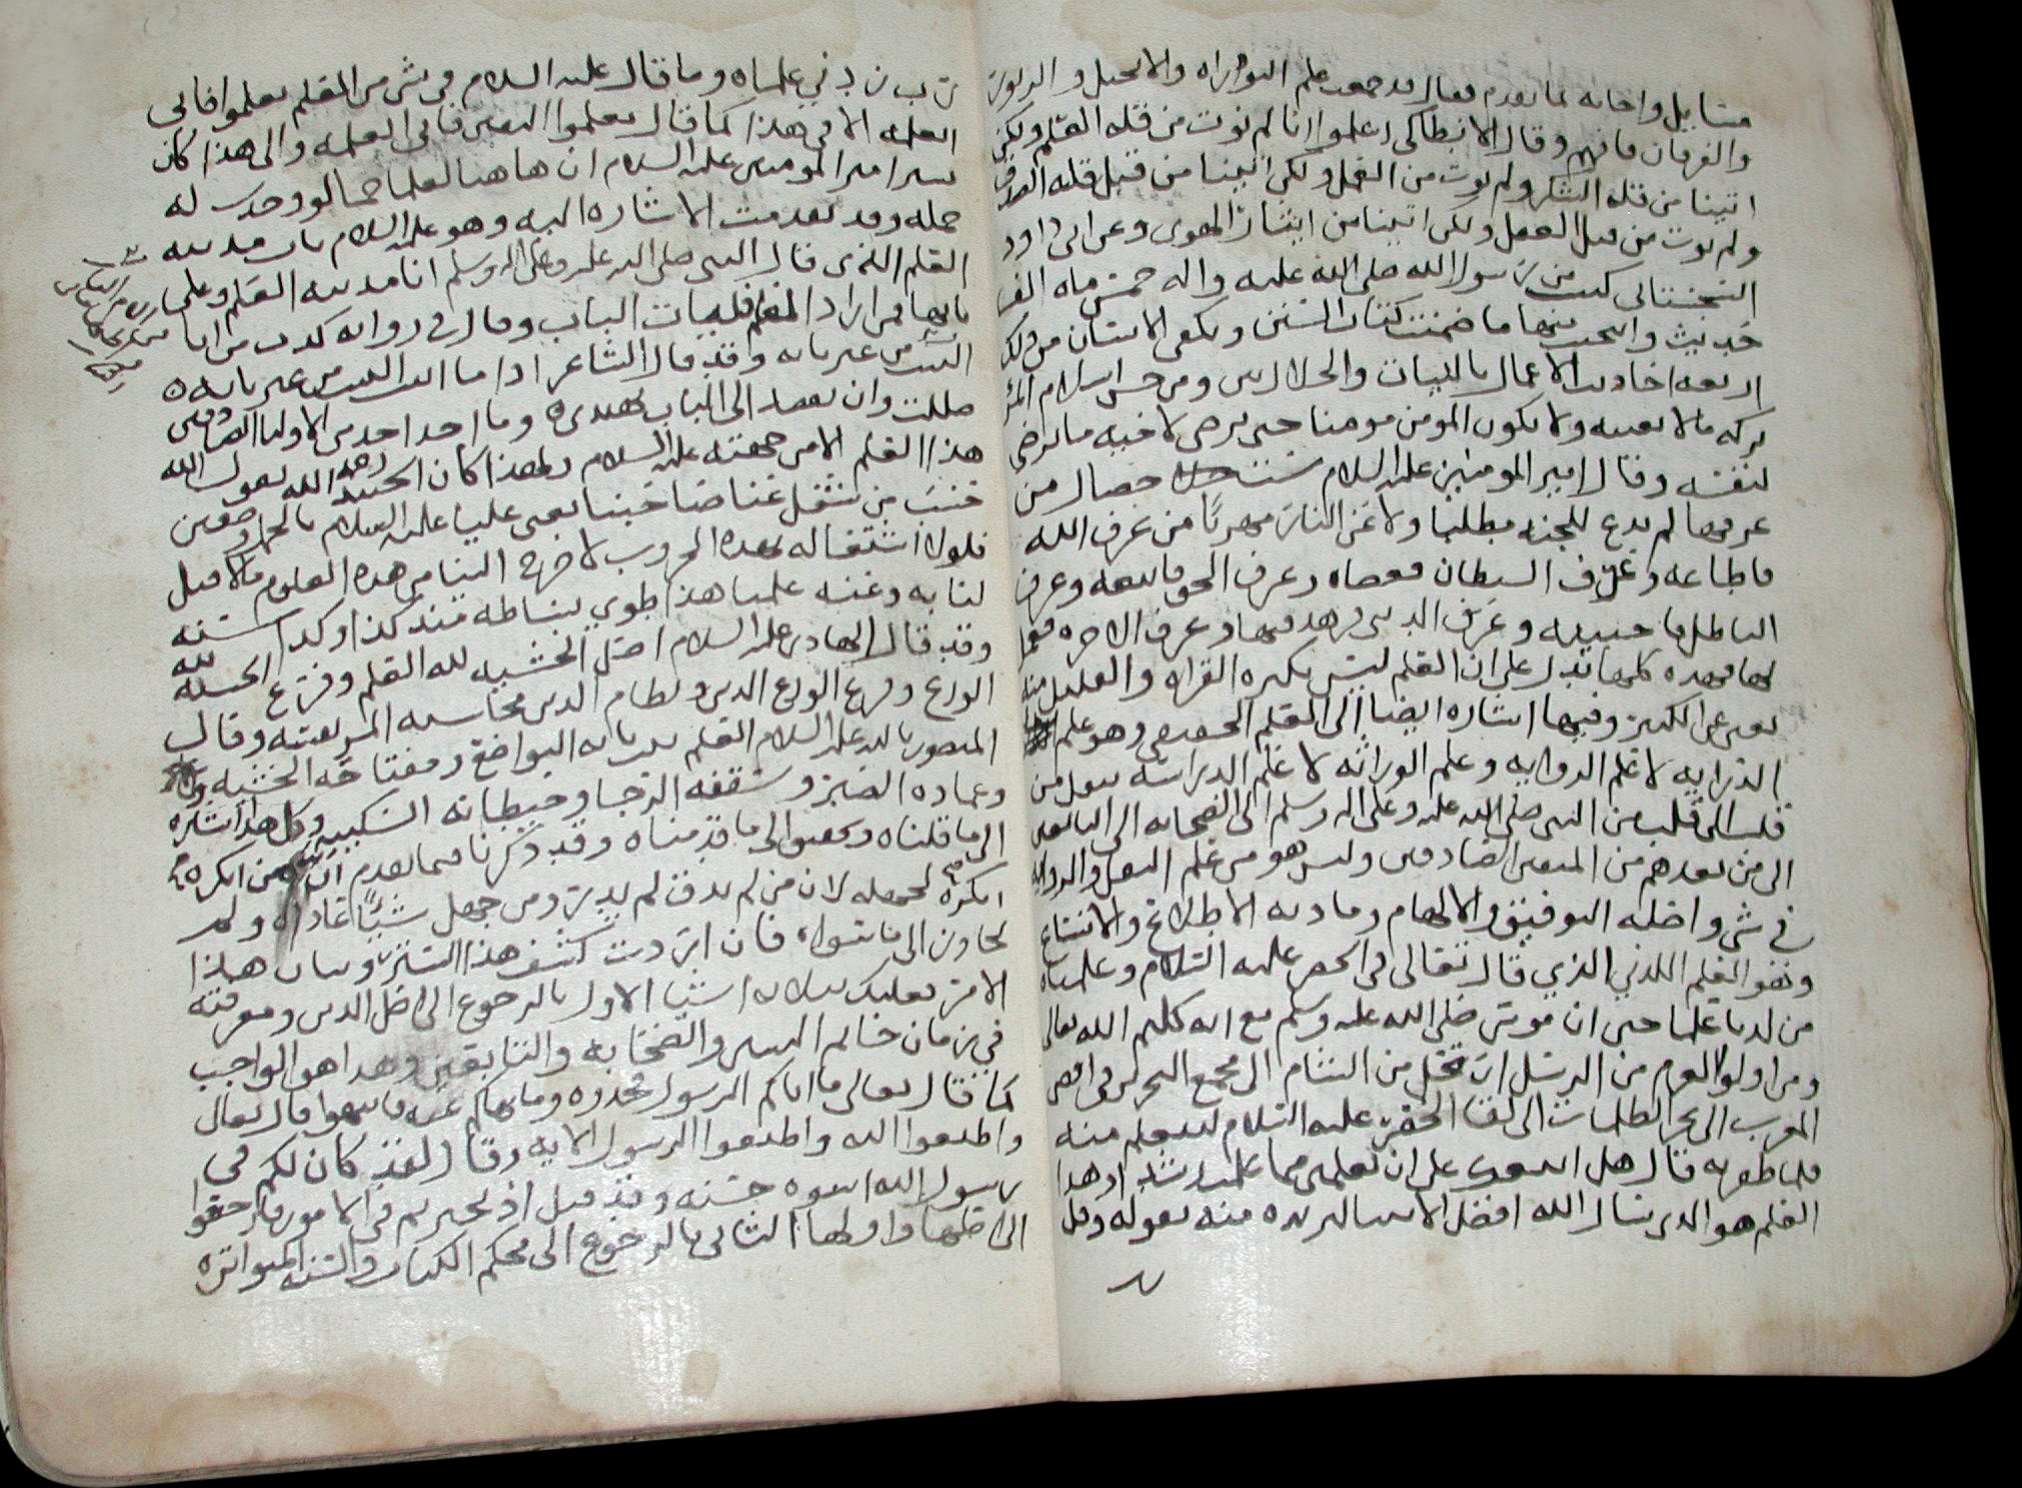 مسايل واجابه لما تقدم فقال قد جمعت علم التوراه والانجيل والزبور
والفرقان فافهم وقال الانطاكي اعلموا انا لم نوت من قله العلم ولكن
اتينا من قله الشكر ولم نوت من العمل ولكن اتينا من قبل قله الصدق
ولم نوت من قبل العقل ولكن اتينا من ايثار الهوى وعن ابى داود
السجستانى كتبت من رسول الله صلى الله عليه واله خمس ماه الف
حديث وانتخبت منها ما ضمنت كتاب السنن ويكفى الانسان من ذلك
اربعه احاديث الاعمال بالنيات والحلال بين ومن حسن اسلام المرء
تركه ما لا يعنيه ولا يكون المومن مومنا حتى يرضى لاخيه ما يرضى
لنفسه وقال امير المومنين عليه السلام ست خصال من
عرفها لم يدع للجنه مطلبا ولا عن النار مهربا من عرف الله
فاطاعه وعرف الشيطان فعصاه وعرف الحق فاتبعه وعرف
الباطل فاجتنبه وعرف الدنيى فزهد فيها وعرف الاخره فعمل
لها فهذه كلها تدل على ان العلم ليس بكثره القراه والقليل منه
يغنى عن الكثير وفيها اشاره ايضا الى العلم الحقيقى وهو علم
الدرايه لا علم الروايه وعلم الوراثه لا علم الدراسه ينقل من
قلب الى قلب من النبى صلى الله عليه وعلى اله وسلم الى الصحابه الى التابعين
الى من بعدهم من المتقين الصادقين وليس هو من علم النقل والروايه
في شى واصله التوفيق والالهام ومادته الاطلاع والاتساع
وهو العلم اللدني الذي قال تعالى فى الخضر عليه السلام وعلمناه
من لدنا علما حتى ان موسى صلى الله عليه وسلم مع انه كليم الله تعالى
ومن اولوا العزم من الرسل ارتحل من الشام الى مجمع البحرين فى اقصى
المغرب الى بحر الظلمات الى لقا الخضر عليه السلام ليتعلم منه
فلما ظفر به قال هل اتبعك على ان تعلمنى مما علمت رشدا وهذا
العلم هو الذى سال الله افضل الانبيا ليزيده منه بقوله وقل
رب زدني علما ه وما قال عليه السلام فى شى من العلم تعلموا فانى
اتعلمه الا في هذا كما قال تعلموا اليقين فانى اتعلمه والى هذا كان
يسر امير المومنين عليه السلام ان هاهنا لعلما جما لو وجدت له
حمله وقد تقدمت الاشاره اليه وهو عليه السلام باب مدينه
العلم الذى قال النبى صلى الله عليه وعلى اله وسلم انا مدينه العلم وعلى
بابها فمن اراد العلم فليات الباب وقال في روايه كذب من اتا
البيت من غير بابه وقد قال الشاعر اذا ما اتيت البيت من غير بابه ه
ضللت وان تقصد الى الباب تهتدى ه وما اخذ احد من الاوليا الصادقين
هذا العلم الا من جهته عليه السلام ولهذا كان الجنيد رحمه الله يقول الله
حسب من شغل عنا صاحبنا يعنى عليا عليه السلام بالجهاد وصفين
فلولا اشتغاله بهذه الحروب لاخرج الينا من هذه العلوم ما لا قبل
لنا به وعنه علمنا هذا طوي بساطه منذ كذا وكذا سنه
وقد قال الهادى عليه السلام اصل الخشيه لله العلم وفرع الخشيه لله
الورع وفرع الورع الدين ونظام الدين محاسبه المرء نفسه وقال
المنصور بالله عليه السلام العلم بيت بابه التواضع ومفتاحه الخشيه
وعماده الصبر وسقفه الرجا وحيطانه السكينه وكل هذا اشاره
الى ما قلناه وتحقيق الى ما قدمناه وقد ذكرنا فيما تقدم ان من انكره
انكره لجهله لان من لم يذق لم يدر ومن جهل شيًا عاداه ولم
يجاوزه الى ما سواه فان اردت كشف هذا الستر وبيان هذا
الامر فعليك بثلاثه اشيا الاول بالرجوع الى اصل الدين ومعرفته
في زمان خاتم النبيين والصحابه والتابعين وهذا هو الواجب
كما قال تعالى ما اتاكم الرسول فخذوه وما نهاكم عنه فانتهوا قال تعالى
واطيعوا الله واطيعوا الرسول الايه وقال لقد كان لكم فى
رسول الله اسوه حسنه وقد قيل اذا تحيرتم فى الامور فارجعوا
الى اصلها واولها الثانى بالرجوع الى محكم الكتاب والسنه المتواتره